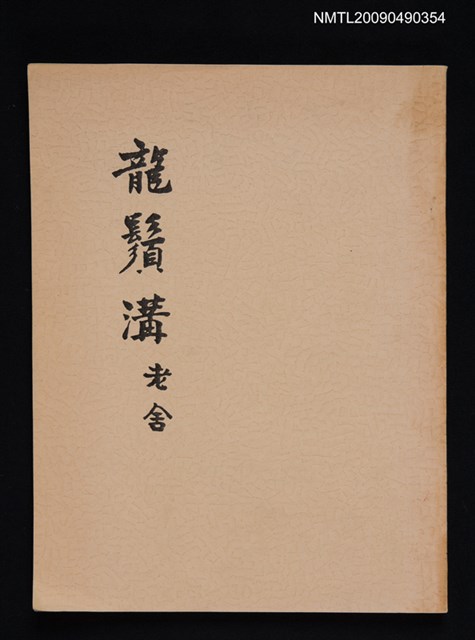 NMTL20090490354
龍鬚溝
老舍